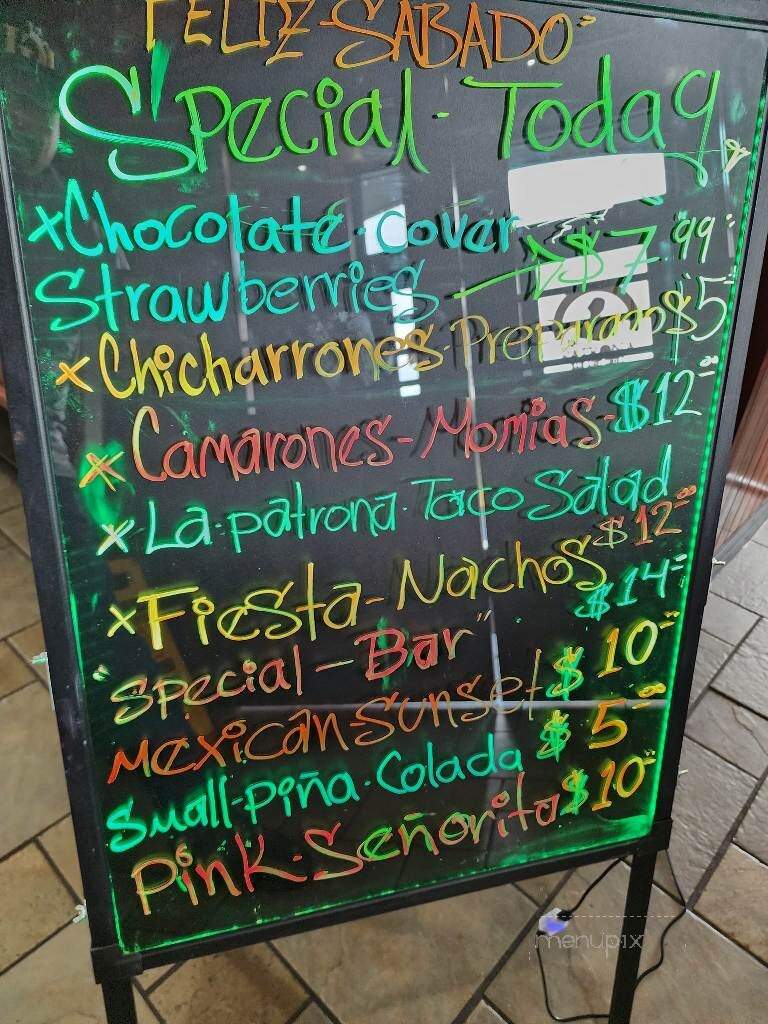 FELIZ-SABADO"
Special-Today
xChocolate-cover
Strawberries $7.99
x Chicharrones-Preparados $5
x Camarones-Momias-$12.00
x La-patrona-Taco Salad
$12.00
x Fiesta-Nachos
$14
"Special-Bar"
Mexican-Sunset $10
Small-Piña-Colada $5.00
Pink-Señorita $10
menupix